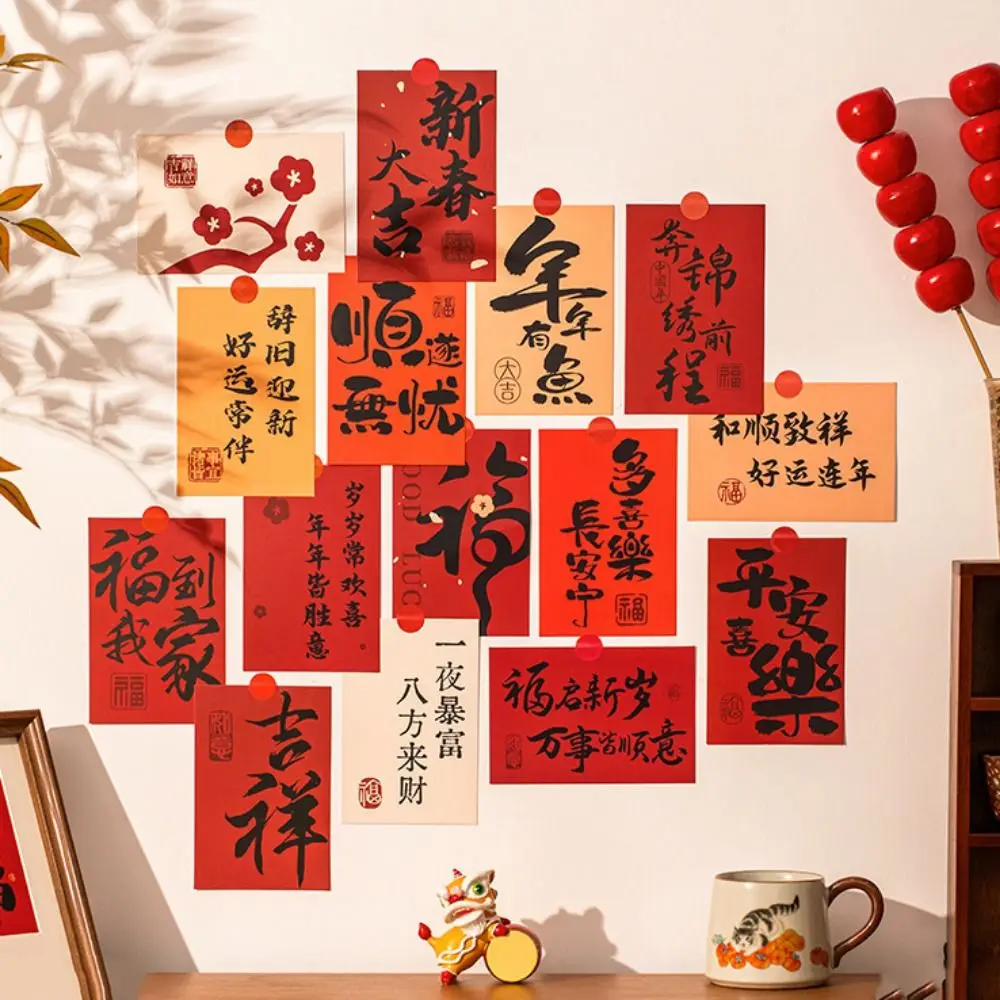 吉祥
如意
新春
大吉
年年
有魚
大吉
奔錦
绣前
程
中國年
福
辞旧迎新
好运常伴
順遂
無忧
福
和顺致祥
好运连年
福
岁岁常欢喜
年年皆胜意
福
GOOD LUC
多喜樂
長安宁
福
平安
喜樂
福到
我家
福
一夜暴富
八方来财
福
福启新岁
万事皆顺意
吉祥
如意